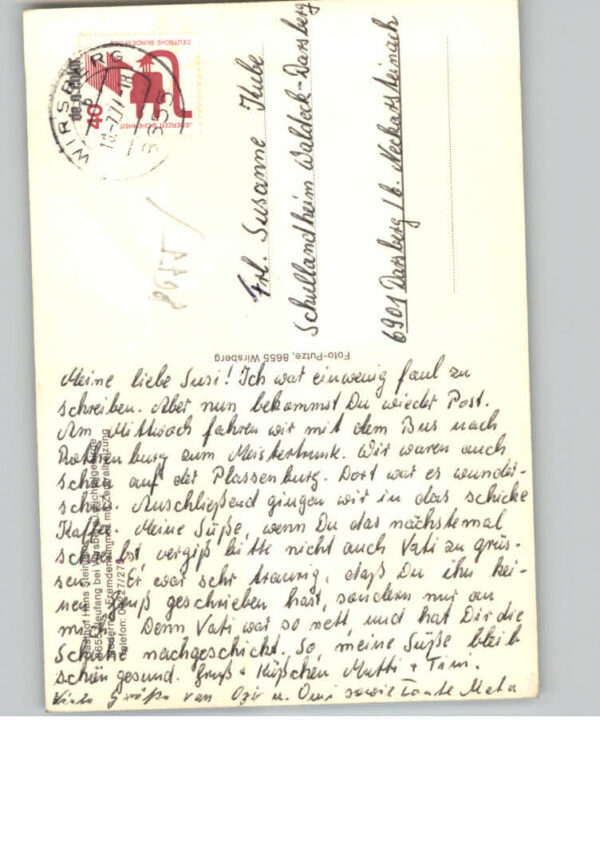 DEUTSCHE BUNDESPOST
40
JEDERZEIT SICHERHEIT
WIRSBERG
8655
Frl. Susanne Kube
Schullandheim Waldeck-Darsberg
6901 Darsberg / b. Neckarsteinach
Foto-Putze, 8655 Wirsberg
Meine liebe Susi! Ich war einwenig faul zu
schreiben. Aber nun bekommst Du wieder Post.
Am Mittwoch fahren wir mit dem Bus nach
Rothenburg zum Meistertrunk. Wir waren auch
schon auf der Plassenburg. Dort war es wunder-
schön. Anschließend gingen wir in das schicke
Kaffee. Meine Süße, wenn Du das nächstemal
schreibst, vergiß bitte nicht auch Vati zu grüs-
sen. Er war sehr traurig, daß Du ihn kei-
nen Gruß geschrieben hast, sondern nur an
mich. Denn Vati war so nett und hat Dir die
Schuhe nachgeschickt. So, meine Süße bleib
schön gesund. Gruß + Küßchen Mutti + Tini.
Viele Grüße von Opi u. Omi sowie Tante Meta
Hans
8655 Neufang bei Wirsberg
Fremdenzimmer mit Zentralheizung
Telefon: